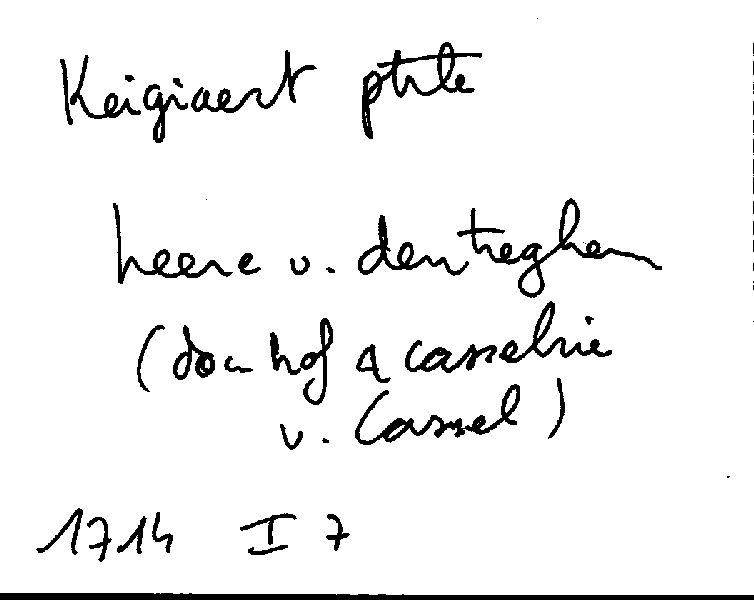 Keigiaert ptrte
heere v. dentreghem
(door hof & casselrie
v. Cassel)
1714 I 7